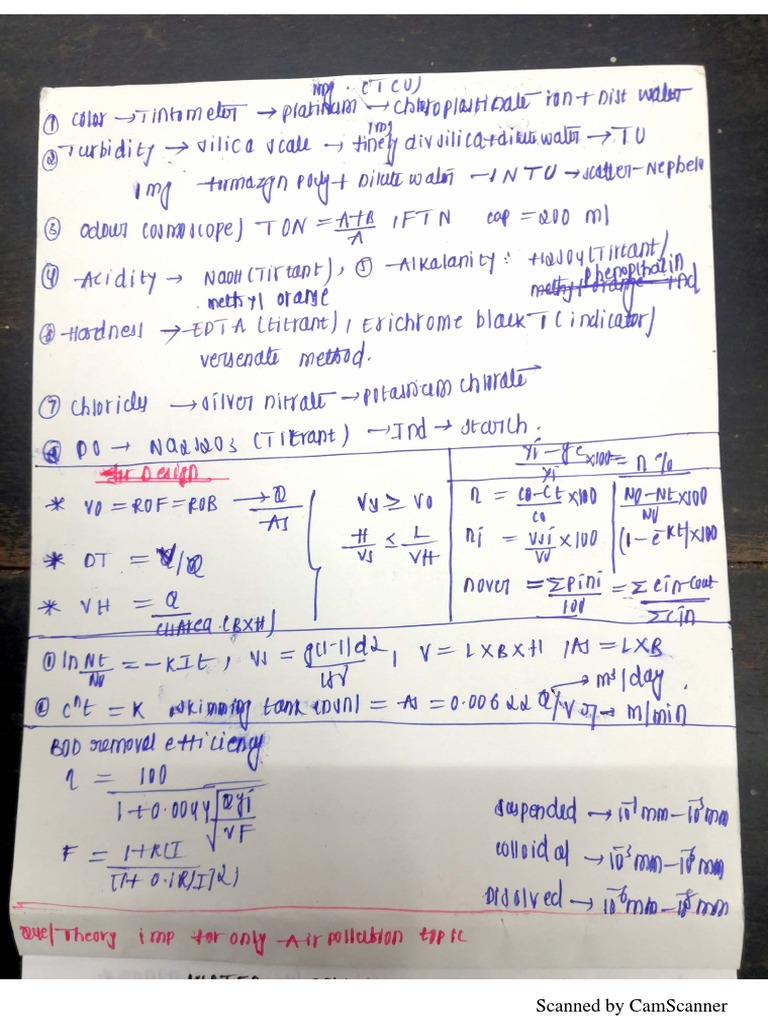 1mg (TCU)
① Color → Tintometer → platinum → chloroplatinate ion + Dist water
② Turbidity → silica scale → 1mg finely div silica + dilute water → TU
1mg formazyn poly + Dilute water → 1NTU → scatter-Nephelo
③ odour (osmoscope) TON = A+B/A , FTN cap = 200 ml
④ Acidity → NaOH (Tirtant), ⑤ Alkalanity : H2SO4 (Tirtant)
methyl orange methyl orange phenopthalin Ind
⑥ Hardness → EDTA (titrant), Erichrome black T (indicator)
versenate method.
⑦ Chlorides → silver nitrate → potassium chlorate
⑧ DO → Na2S2O3 (Titrant) → Ind → starch.
for Design
yi - ye/yi ×100 = η%
* V0 = ROF = ROB → Q/As
Vs ≥ V0
η = C0-Ct/C0 ×100
N0-Nt/N0 ×100
* DT = V/Q
H/Vs ≤ L/VH
ηi = Vsi/V0 ×100
(1-e^-kt)×100
* VH = Q/C/tArea.(B×H)
ηover = Σpini/100 = Σcin-cout/Σcin
① ln Nt/N0 = -KIt, Vs = g(G-1)d2/18ν, V = L×B×H , As = L×B
② c^n t = K skimming tank (DSN) = As = 0.00622 Q/Vr → m3/day.
→ m/min
BOD removal efficiency
η = 100/1+0.0044√Qyi/VF
F = 1+R/I/[1+0.1R/I]2)
suspended → 10^-1 mm - 10^-3 mm
colloidal → 10^-3 mm - 10^-6 mm
Dissolved → 10^-6 mm - 10^-8 mm
one/Theory imp for only Air pollution topic
Scanned by CamScanner